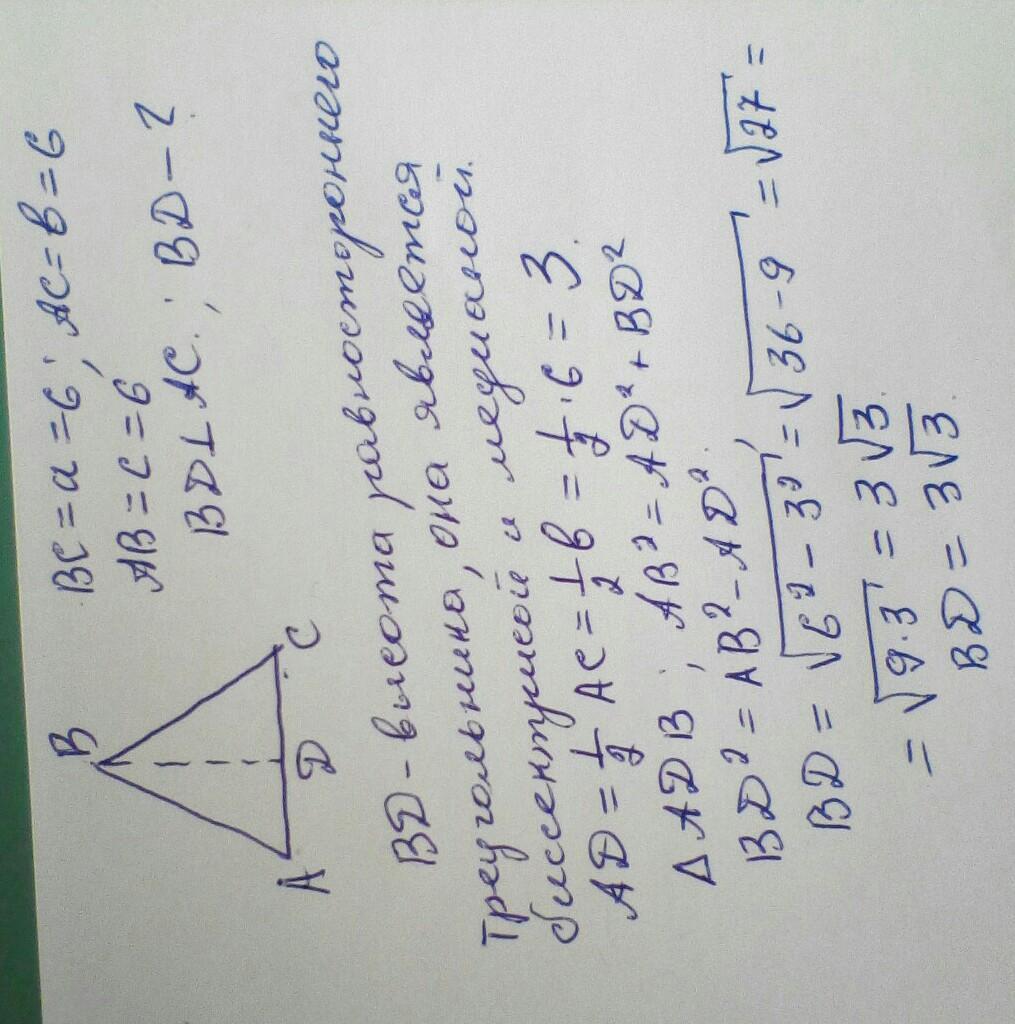 B
A
D
C
BC = a = 6; AC = b = 6
AB = c = 6
BD ⊥ AC; BD - ?
BD - высота равностороннего
треугольника, она является
биссектрисой и медианой.
AD = 1/2 AC = 1/2 b = 1/2 · 6 = 3.
Δ ADB; AB² = AD² + BD²
BD² = AB² - AD².
BD = √(6² - 3²) = √(36 - 9) = √27 =
= √(9·3) = 3√3
BD = 3√3